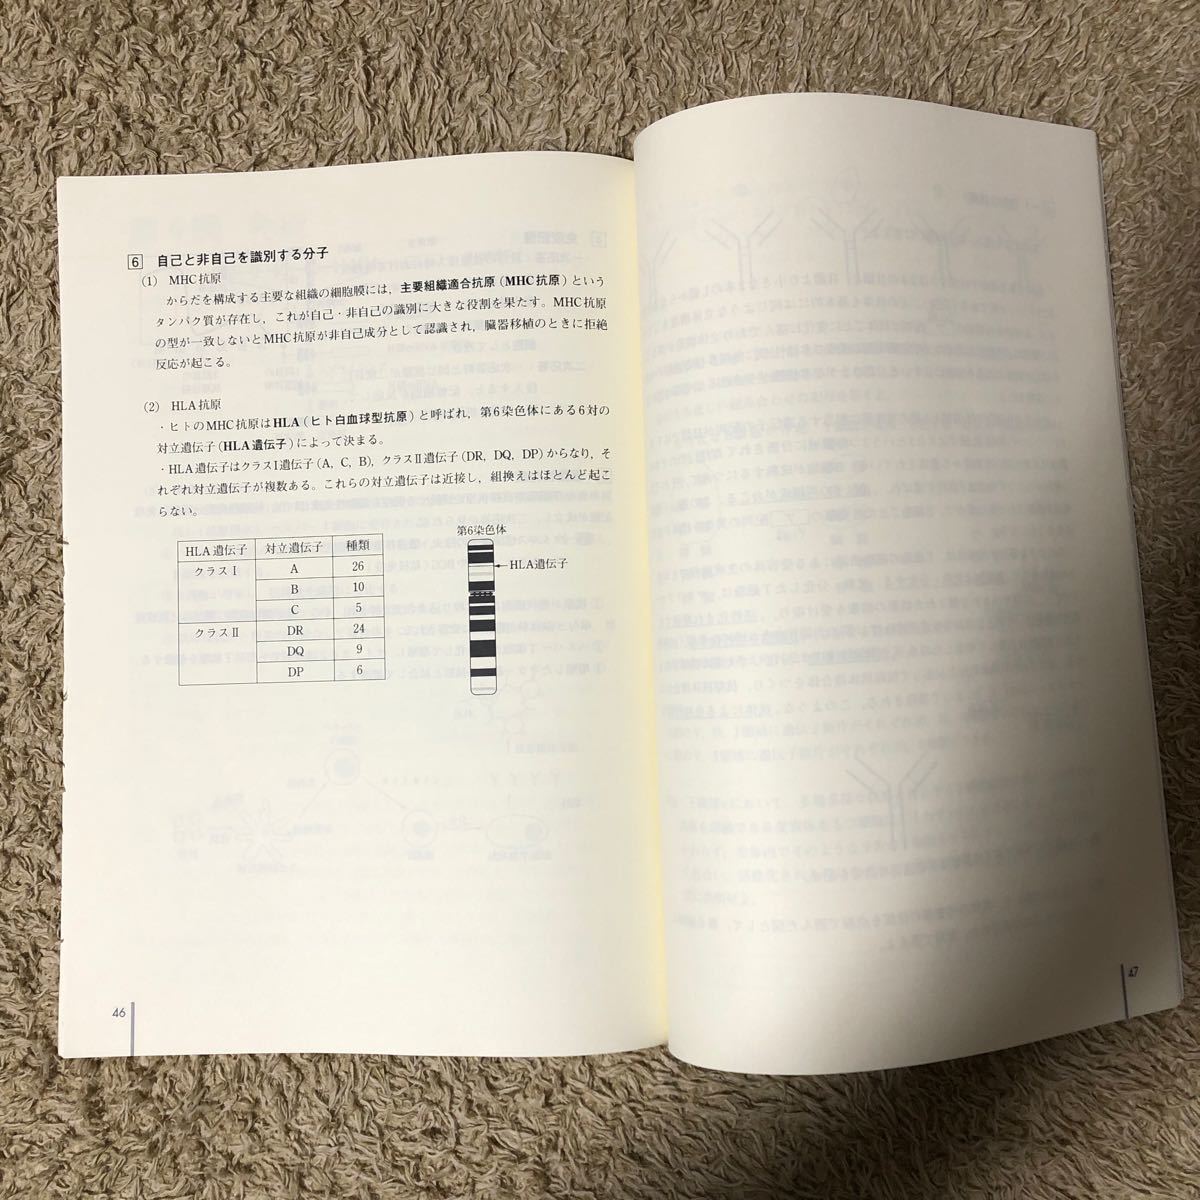 6 自己と非自己を識別する分子
(1) MHC抗原
からだを構成する主要な組織の細胞膜には，主要組織適合抗原（MHC抗原）という
タンパク質が存在し，これが自己・非自己の識別に大きな役割を果たす。MHC抗原
の型が一致しないとMHC抗原が非自己成分として認識され，臓器移植のときに拒絶
反応が起こる。
(2) HLA抗原
・ヒトのMHC抗原はHLA（ヒト白血球型抗原）と呼ばれ，第6染色体にある6対の
対立遺伝子（HLA遺伝子）によって決まる。
・HLA遺伝子はクラスⅠ遺伝子（A，C，B），クラスⅡ遺伝子（DR，DQ，DP）からなり，そ
れぞれ対立遺伝子が複数ある。これらの対立遺伝子は近接し，組換えはほとんど起こ
らない。
HLA遺伝子 対立遺伝子 種類
クラスⅠ A 26
B 10
C 5
クラスⅡ DR 24
DQ 9
DP 6
第6染色体
HLA遺伝子
46
47